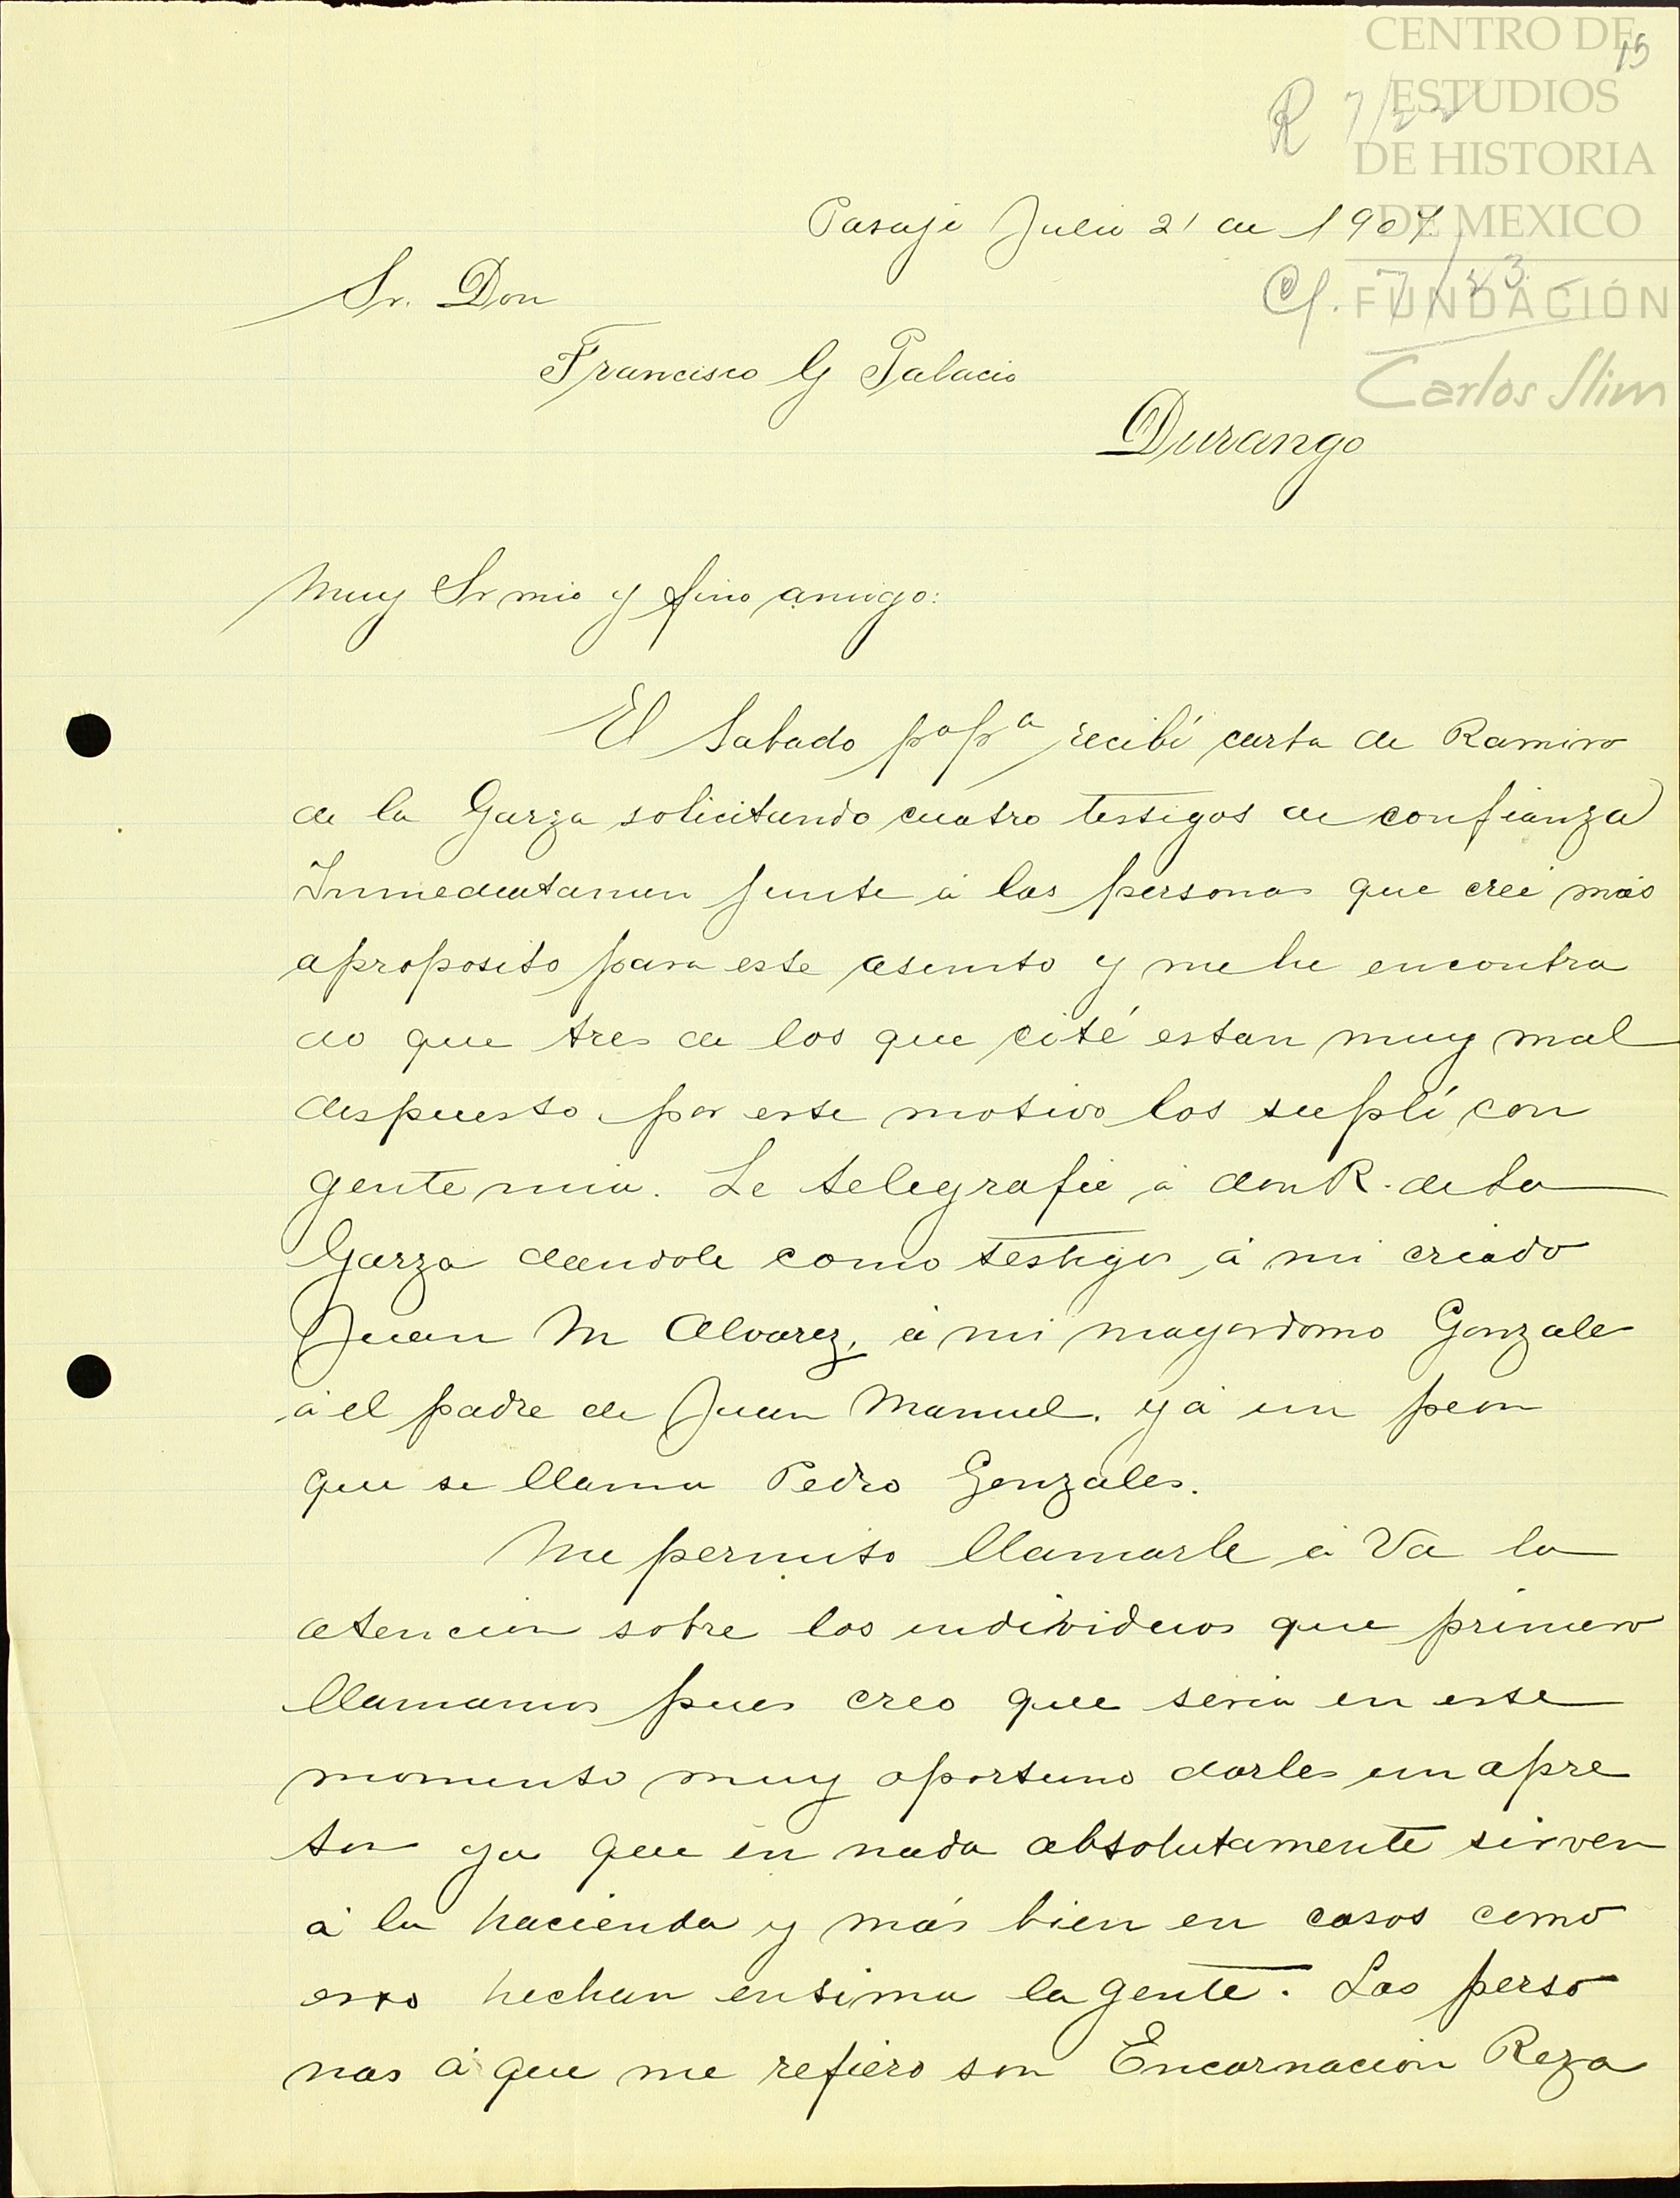 CENTRO DE
ESTUDIOS
DE HISTORIA
DE MEXICO
FUNDACIÓN
Carlos Slim
15
R 7/22
Pasaje Julio 21 de 1907.
C/. 7/23
Sr. Don
Francisco G Palacio
Durango
Muy Sr mio y fino amigo:
El Sabado pº pª recibí carta de Ramiro
de la Garza solicitando cuatro testigos de confianza
Inmediatamen junte á las personas que creí más
aproposito para este asunto y me he encontra
do que tres de los que cité estan muy mal
despuesto por este motivo los suplí con
gente mia. Le telegrafie á don R. de la
Garza dandole como testigos á mi criado
Juan M Alvarez, á mi mayordomo Gonzale
á el padre de Juan Manuel. y á un peon
que se llama Pedro Gonzales.
Me permito llamarle á Vd la
atencion sobre los individuos que primero
llamamos pues creo que seria en este
momento muy oportuno darles un apre
ton ya que en nada absolutamente sirven
á la hacienda y más bien en casos como
esto hechan ensima la gente. Las perso
nas á que me refiero son Encarnacion Reza